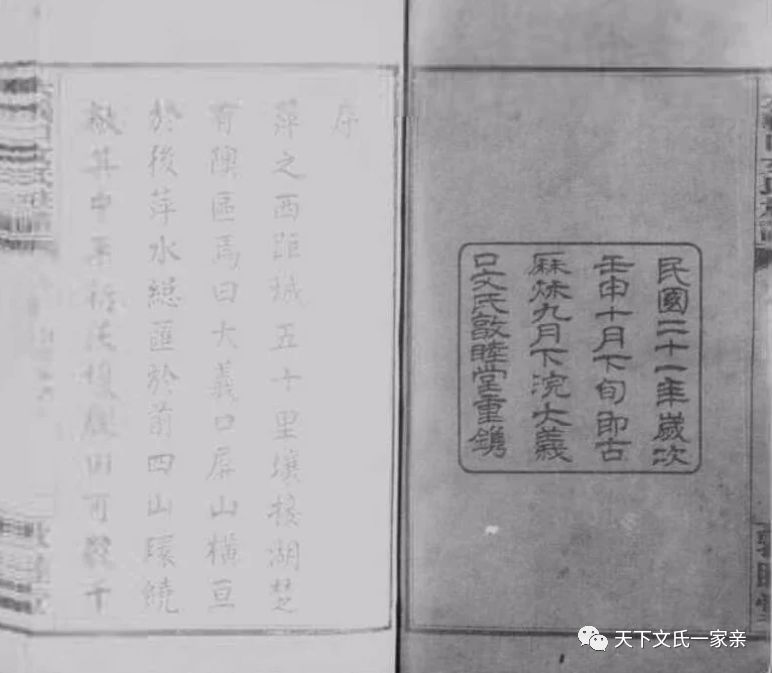 民國二十一年歲次
壬申十月下旬即古
厤秌九月下浣大義
口文氏敦睦堂重鐫
序
萍之西距城五十里壤接湖楚
有隩區焉曰大義口屏山橫亘
於後萍水緫匯於前四山環繞
其中平衍沃壤田可數千
天下文氏一家亲